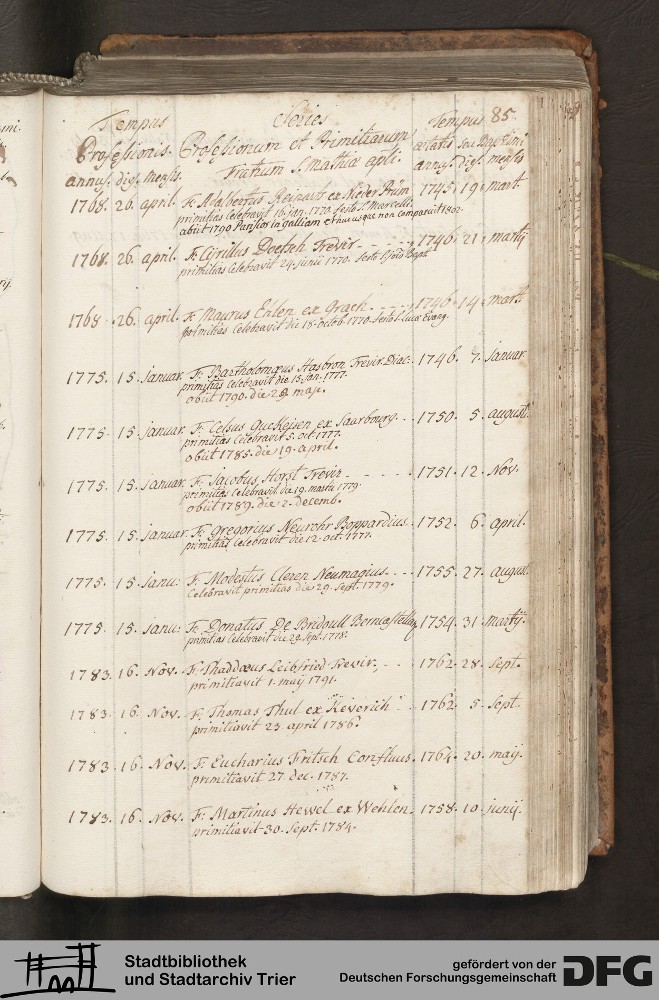 Tempus Series Tempus 85.
Professionis. Professionum et Primitiarum ætatis seu Dies
annus. dies. mensis. Fratrum S. Mathiæ apli. annus. dies. mensis
1768. 26. april. F. Adalbertus Reinart ex Nieder Prüm 1745. 19. mart.
primitias celebravit 16. jan. 1770. festo S. Marcelli.
abiit 1790 Parisios in galliam et hucusque non comparuit 1802.
1768. 26. april. F. Cyrillus Doetsch Trevir. 1746. 21. martij
primitias celebravit 24. junii 1770. festo S. Bapt.
1768. 26. april. F. Maurus Ehlen ex Grach. 1746. 14. mart.
primitias celebravit die 18. octob. 1770. festo S. Lucæ Evang.
1775. 15. januar. F. Bartholomæus Hasbron Trevir. Diac. 1746. 7. januar.
primitias celebravit die 15. jan. 1777.
obiit 1790. die 28. maji.
1775. 15. januar. F. Celsus ex Saarbourg. 1750. 5. august.
primitias celebravit 5. oct. 1777.
obiit 1785. die 19. april.
1775. 15. januar. F. Jacobus Horst Trevir. 1751. 12. Nov.
primitias celebravit die 19. martii 1779.
obiit 1789. die 2. decemb.
1775. 15. januar. F. Gregorius Neurohr Boppardius. 1752. 6. april.
primitias celebravit die 12. oct. 1777.
1775. 15. janu: F. Modestus Cleren Neumagius. 1755. 27. august.
celebravit primitias die 29. Sept. 1779.
1775. 15. janu: F. Donatus De Bridoull 1754. 31. martij.
primitias celebravit die 29. sept. 1778.
1783. 16. Nov. F. Thaddæus Leibfried Trevir. 1762. 28. Sept.
primitiavit 1. maij 1791.
1783. 16. Nov. F. Thomas Thul ex Keverich 1762. 5. Sept.
primitiavit 23. april 1786.
1783. 16. Nov. F. Eucharius Fritsch Confluus. 1764. 20. maij.
primitiavit 27. dec. 1787.
1783. 16. Nov. F. Martinus Hewel ex Wehlen. 1758. 10. junij.
primitiavit 30. Sept. 1784.
Stadtbibliothek
und Stadtarchiv Trier
gefördert von der
Deutschen Forschungsgemeinschaft
DFG